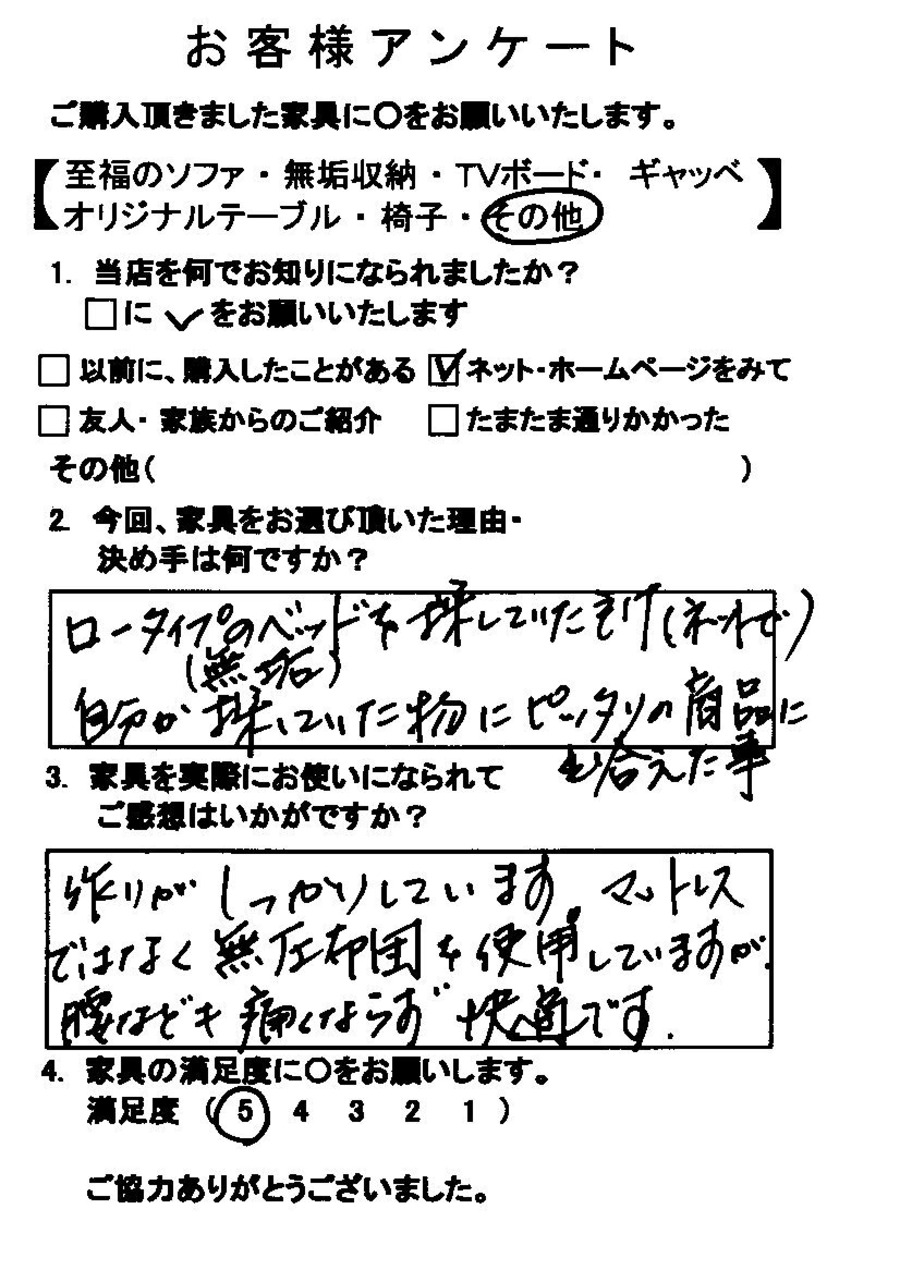 お客様アンケート
ご購入頂きました家具に〇をお願いいたします。
【至福のソファ・無垢収納・TVボード・ ギャッベ
オリジナルテーブル・椅子・その他】
1. 当店を何でお知りになられましたか？
□に✓をお願いいたします
□以前に、購入したことがある ☑ネット・ホームページをみて
□友人・家族からのご紹介 □たまたま通りかかった
その他( )
2. 今回、家具をお選び頂いた理由・
決め手は何ですか？
ロータイプのベッドを探していたとき(ネットで)
(無垢)
自分が探していた物にピッタリの商品に
出合えた事
3. 家具を実際にお使いになられて
ご感想はいかがですか？
作りがしっかりしています。マットレス
ではなく無圧布団を使用していますが、
腰なども痛くならず快適です.
4. 家具の満足度に〇をお願いします。
満足度 (5 4 3 2 1)
ご協力ありがとうございました。